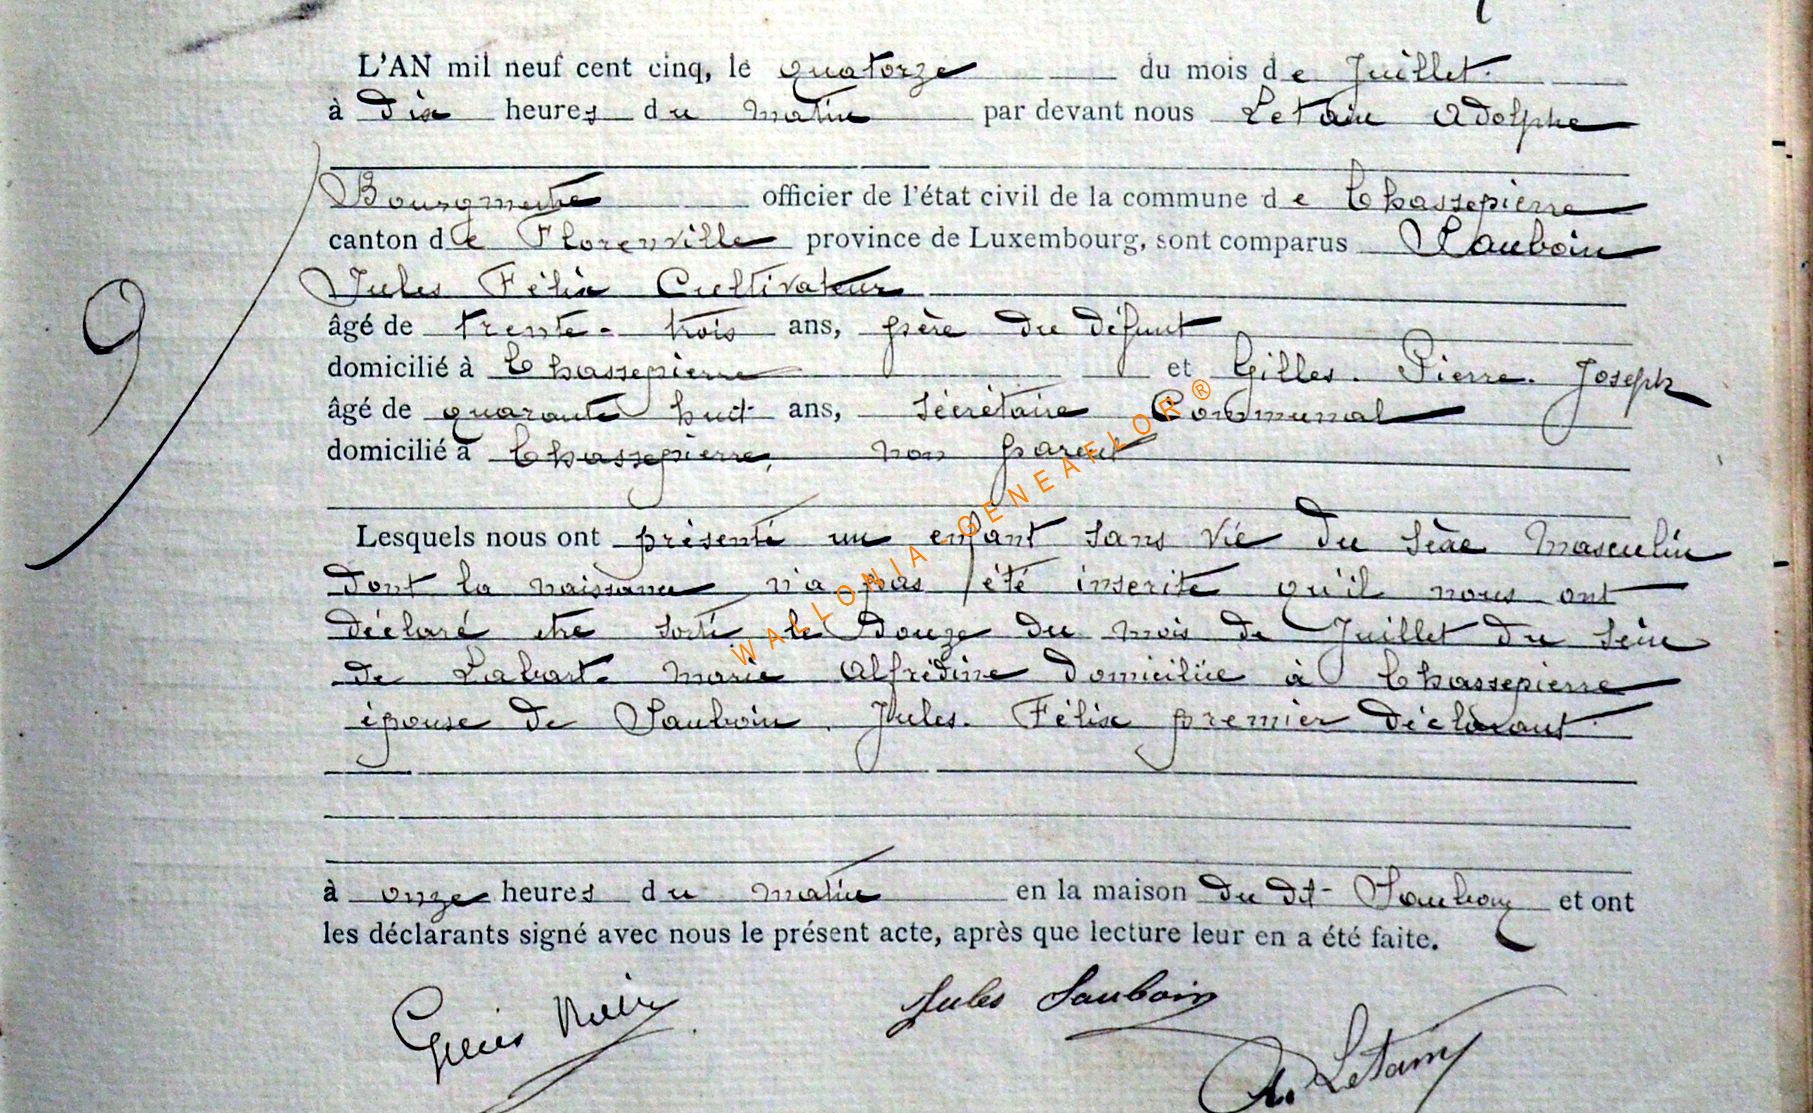 L'AN mil neuf cent cinq, le quatorze du mois de Juillet.
à dix heures du matin par devant nous Letain Adolphe
Bourgmestre officier de l'état civil de la commune de Chassepierre
canton de Florenville province de Luxembourg, sont comparus Sauboin
Jules Félix Cultivateur
âgé de trente-trois ans, père du défunt
domicilié à Chassepierre et Gilles. Pierre. Joseph
âgé de quarante huit ans, sécrétaire Communal
domicilié à Chassepierre, non parent
9
Lesquels nous ont présenté un enfant sans vie du sèxe masculin
dont la naissance n'a pas été inscrite qu'il nous ont
déclaré etre sorti le douze du mois de Juillet du sein
de Labart. Marie Alfrédine domiciliée à Chassepierre
épouse de Sauboin. Jules. Félix premier déclarant.
à onze heures du matin en la maison du dit Sauboin et ont
les déclarants signé avec nous le présent acte, après que lecture leur en a été faite.
Jules Sauboin
A. Letain
WALLONIA GENEAFLOR®